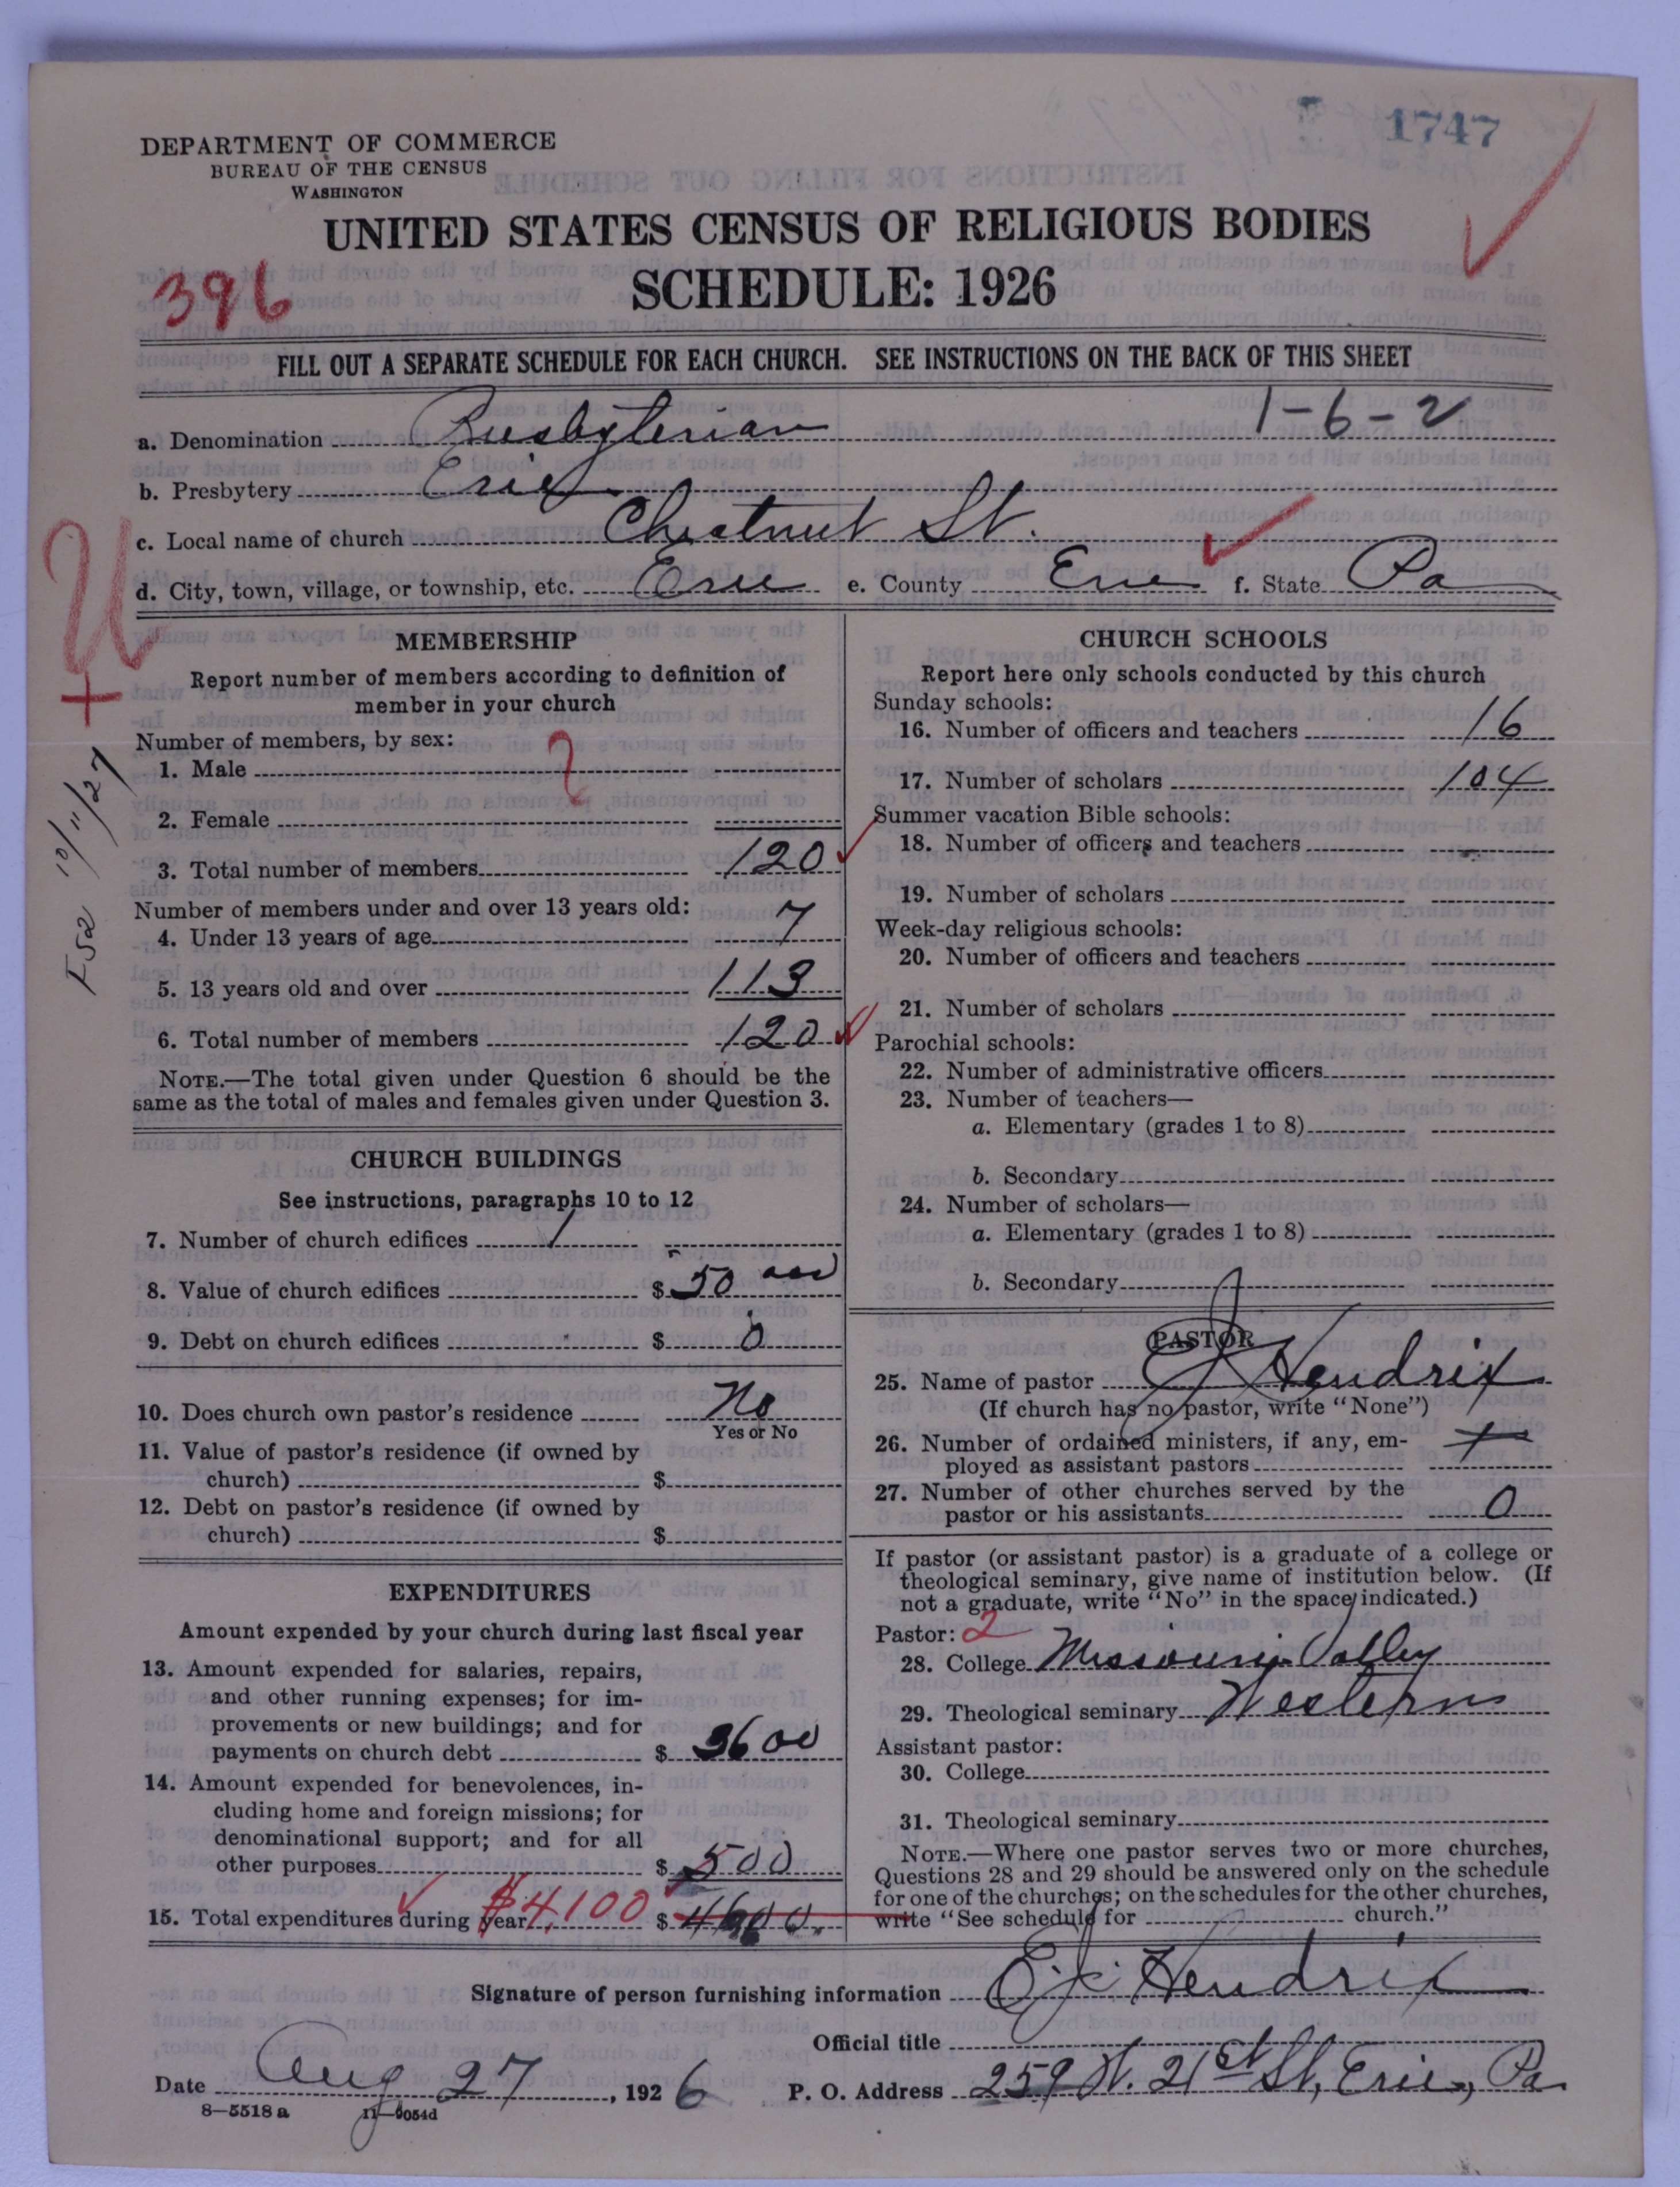 1747
DEPARTMENT OF COMMERCE
BUREAU OF THE CENSUS
WASHINGTON
UNITED STATES CENSUS OF RELIGIOUS BODIES
396
SCHEDULE: 1926
FILL OUT A SEPARATE SCHEDULE FOR EACH CHURCH. SEE INSTRUCTIONS ON THE BACK OF THIS SHEET
1-6-2
a. Denomination Presbyterian
b. Presbytery Erie
c. Local name of church Chestnut St.
d. City, town, village, or township, etc. Erie e. County Erie f. State Pa
10/11/27
MEMBERSHIP
Report number of members according to definition of
member in your church
Number of members, by sex:
1. Male
2. Female
3. Total number of members 120
Number of members under and over 13 years old:
4. Under 13 years of age 7
5. 13 years old and over 113
6. Total number of members 120
NOTE.—The total given under Question 6 should be the
same as the total of males and females given under Question 3.
CHURCH BUILDINGS
See instructions, paragraphs 10 to 12
7. Number of church edifices 1
8. Value of church edifices $ 50 000
9. Debt on church edifices $ 0
10. Does church own pastor's residence No
Yes or No
11. Value of pastor's residence (if owned by
church) $
12. Debt on pastor's residence (if owned by
church) $
EXPENDITURES
Amount expended by your church during last fiscal year
13. Amount expended for salaries, repairs,
and other running expenses; for im-
provements or new buildings; and for
payments on church debt $ 3600
14. Amount expended for benevolences, in-
cluding home and foreign missions; for
denominational support; and for all
other purposes $ 500
15. Total expenditures during year $4,100 $
CHURCH SCHOOLS
Report here only schools conducted by this church
Sunday schools:
16. Number of officers and teachers 16
17. Number of scholars 104
Summer vacation Bible schools:
18. Number of officers and teachers
19. Number of scholars
Week-day religious schools:
20. Number of officers and teachers
21. Number of scholars
Parochial schools:
22. Number of administrative officers
23. Number of teachers—
a. Elementary (grades 1 to 8)
b. Secondary
24. Number of scholars—
a. Elementary (grades 1 to 8)
b. Secondary
PASTOR
25. Name of pastor E J Hendrix
(If church has no pastor, write "None")
26. Number of ordained ministers, if any, em-
ployed as assistant pastors
27. Number of other churches served by the
pastor or his assistants 0
If pastor (or assistant pastor) is a graduate of a college or
theological seminary, give name of institution below. (If
not a graduate, write "No" in the space indicated.)
Pastor: 2
28. College Missouri Valley
29. Theological seminary Western
Assistant pastor:
30. College
31. Theological seminary
NOTE.—Where one pastor serves two or more churches,
Questions 28 and 29 should be answered only on the schedule
for one of the churches; on the schedules for the other churches,
write "See schedule for church."
Signature of person furnishing information E. J. Hendrix
Official title
Date Aug 27, 1926 P. O. Address 259 W. 21st St, Erie, Pa
8—5518 a 11—9054d